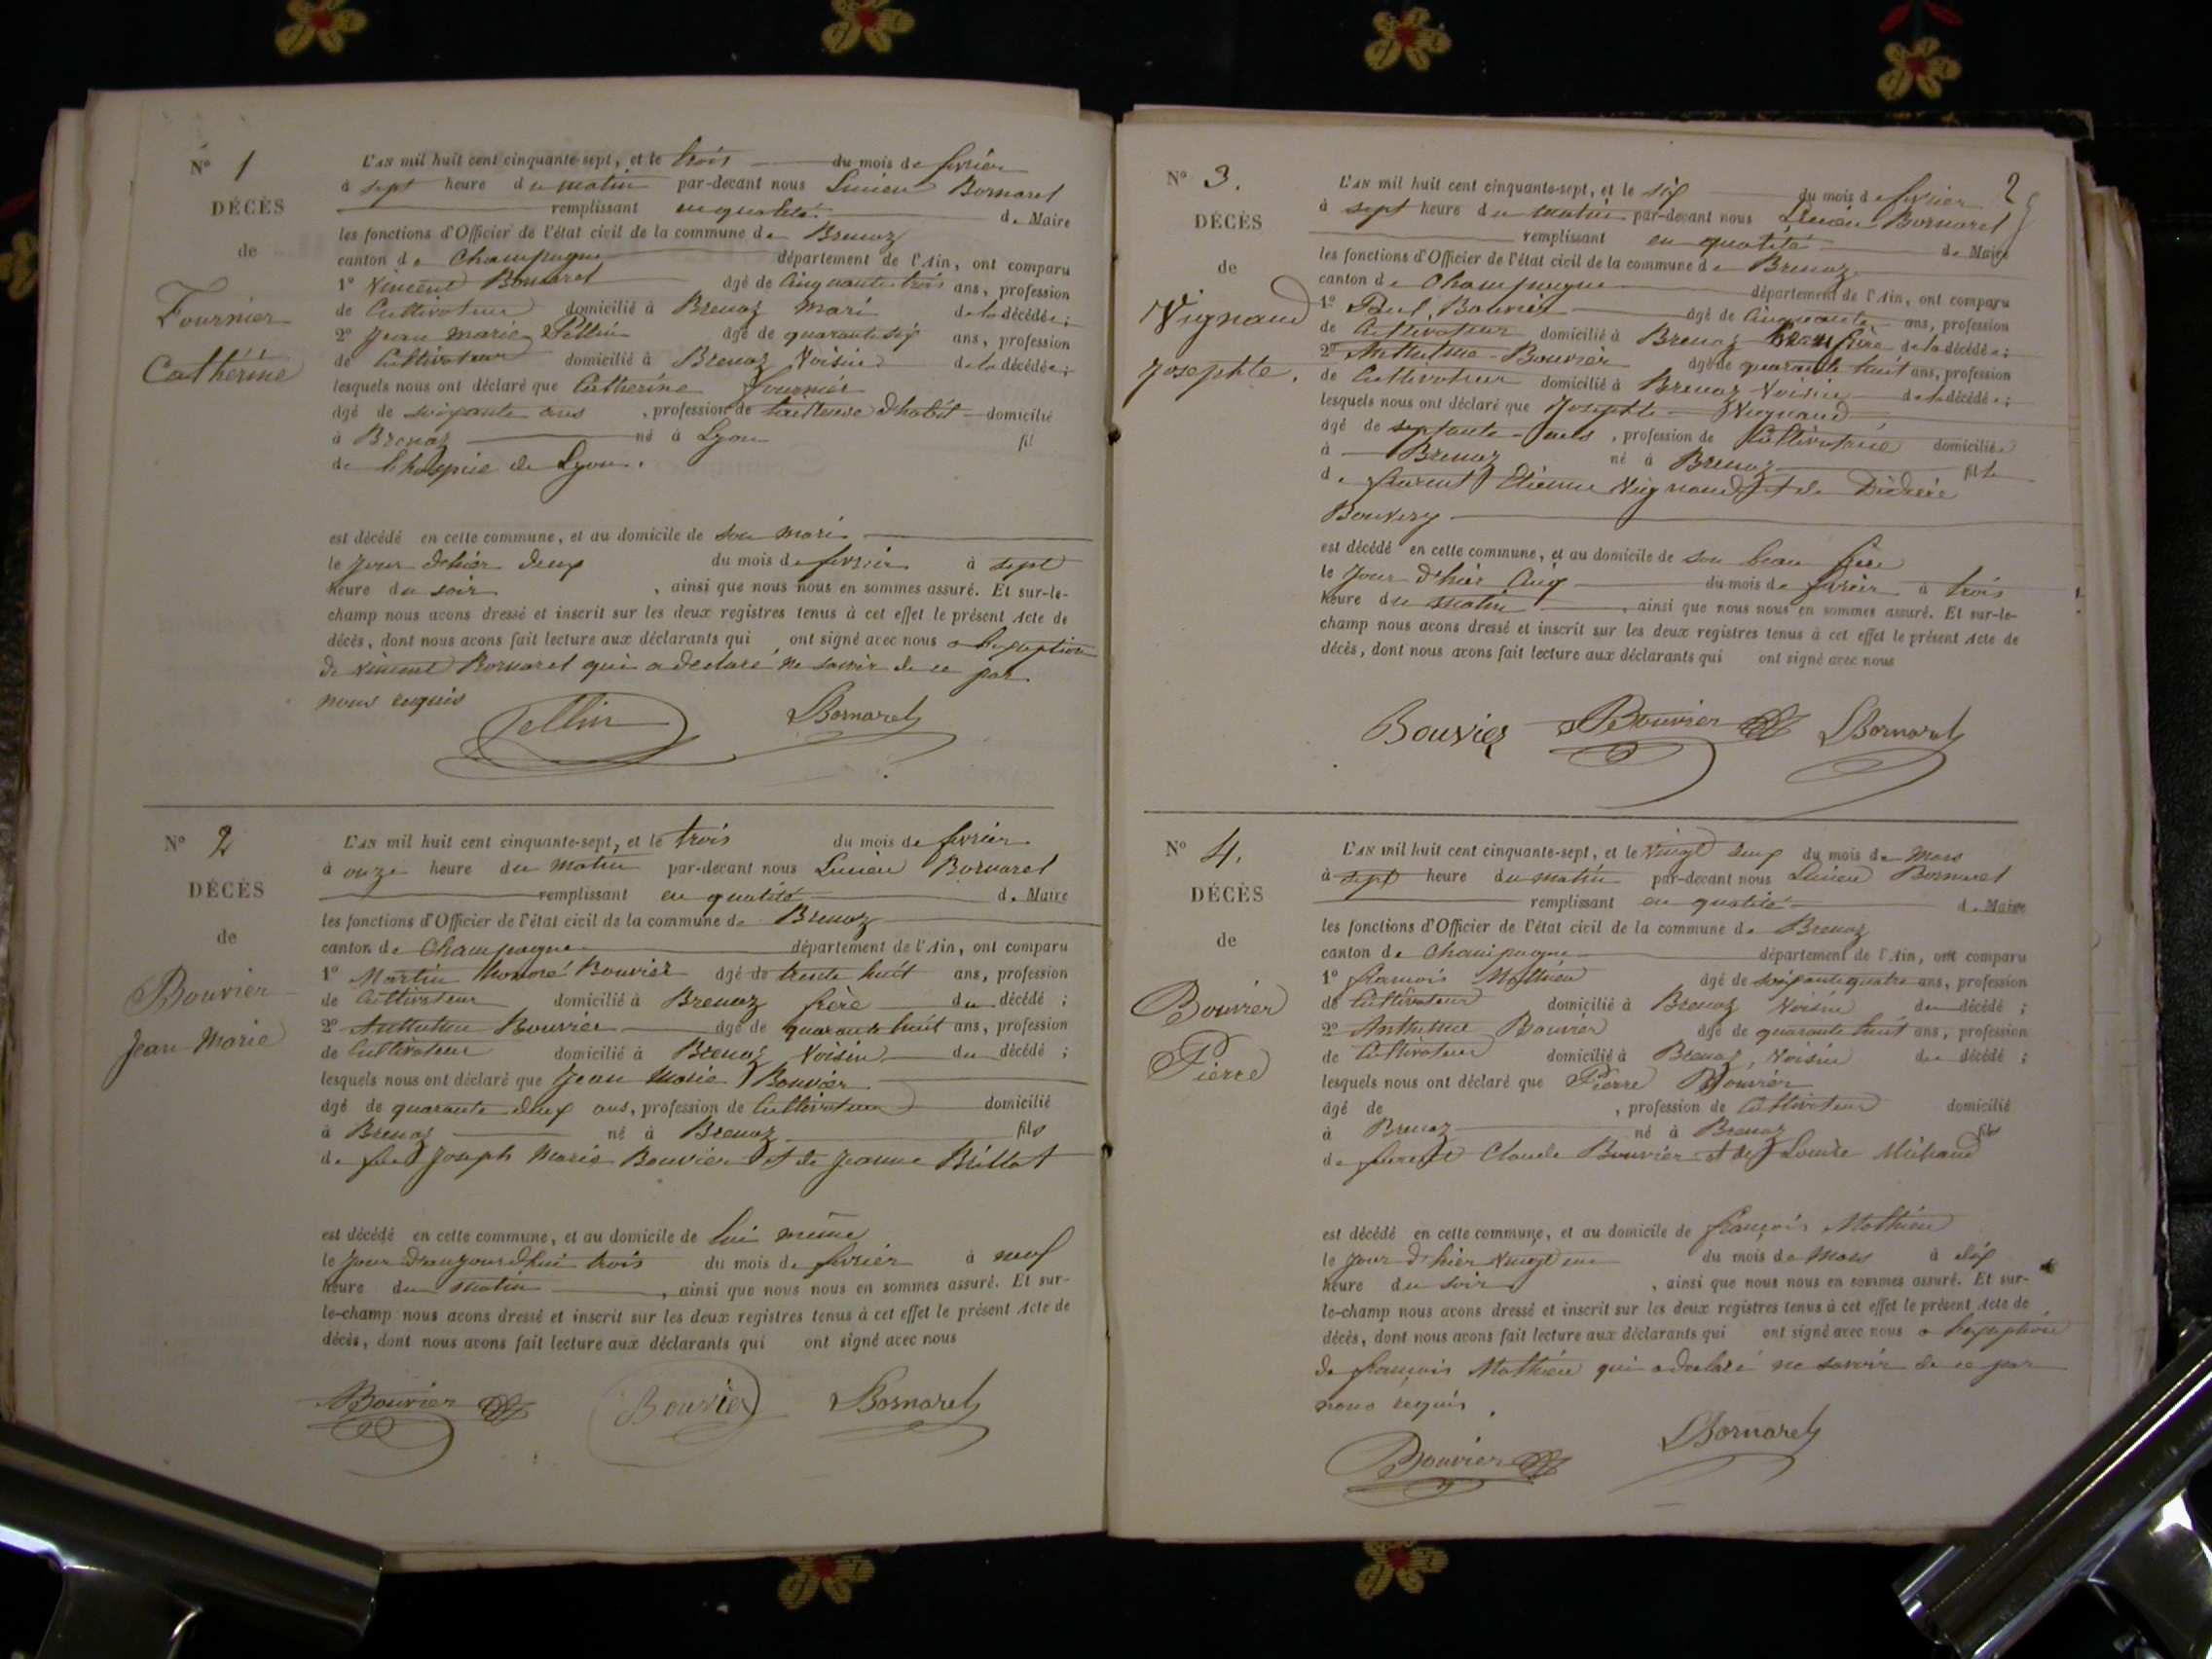 N° 1
DÉCÈS
de
Fournier
Cathérine
L'AN mil huit cent cinquante-sept, et le trois du mois de fevrier
à sept heure du matin par-devant nous Lucien Bornarel
remplissant en qualité de Maire
les fonctions d'Officier de l'état civil de la commune de Brenaz
canton de Champagne département de l'Ain, ont comparu
1° Vincent Bornarel âgé de Cinquante trois ans, profession
de Cultivateur domicilié à Brenaz Mari de la décédée;
2° Jean Marie Tellin âgé de quarante six ans, profession
de Cultivateur domicilié à Brenaz Voisin de la décédée;
lesquels nous ont déclaré que Catherine fournier
âgé de soixante ans, profession de tailleuse d'habit domicilié
à Brenaz né à Lyon fil
de l'hospice de Lyon.
est décédé en cette commune, et au domicile de son mari
le Jour d'hier deux du mois de fevrier à sept
heure du soir, ainsi que nous nous en sommes assuré. Et sur-le-
champ nous avons dressé et inscrit sur les deux registres tenus à cet effet le présent Acte de
décès, dont nous avons fait lecture aux déclarants qui ont signé avec nous a l'exception
de Vincent Bornarel qui a declaré ne savoir de ce par
nous requis
Tellin LBornarel
N° 2
DÉCÈS
de
Bouvier
Jean Marie
L'AN mil huit cent cinquante-sept, et le trois du mois de fevrier
à onze heure du matin par-devant nous Lucien Bornarel
remplissant en qualité de Maire
les fonctions d'Officier de l'état civil de la commune de Brenaz
canton de Champagne département de l'Ain, ont comparu
1° Martin honoré Bouvier âgé de trente huit ans, profession
de Cultivateur domicilié à Brenaz frère du décédé;
2° Anthelme Bouvier âgé de quarante huit ans, profession
de Cultivateur domicilié à Brenaz Voisin du décédé;
lesquels nous ont déclaré que Jean Marie Bouvier
âgé de quarante deux ans, profession de Cultivateur domicilié
à Brenaz né à Brenaz fils
de feu Joseph Marie Bouvier et de Jeanne Brillat
est décédé en cette commune, et au domicile de lui même
le Jour d'aujourd'hui trois du mois de fevrier à neuf
heure du matin, ainsi que nous nous en sommes assuré. Et sur-
le-champ nous avons dressé et inscrit sur les deux registres tenus à cet effet le présent Acte de
décès, dont nous avons fait lecture aux déclarants qui ont signé avec nous
ABouvier Bouvier LBornarel
2
N° 3.
DÉCÈS
de
Vugnaud
Josephte.
L'AN mil huit cent cinquante-sept, et le six du mois de fevrier
à sept heure du matin par-devant nous Lucien Bornarel
remplissant en qualité de Maire
les fonctions d'Officier de l'état civil de la commune de Brenaz
canton de Champagne département de l'Ain, ont comparu
1° Paul Bouvier âgé de Cinquante ans, profession
de Cultivateur domicilié à Brenaz beau frère de la décédée;
2° Anthelme Bouvier âgé de quarante huit ans, profession
de Cultivateur domicilié à Brenaz Voisin de la décédée;
lesquels nous ont déclaré que Josephte Vugnaud
âgé de septante ans, profession de Cultivatrice domiciliée
à Brenaz né à Brenaz fille
de Etienne Vugnaud et de
est décédé en cette commune, et au domicile de son beau frère
le Jour d'hier Cinq du mois de fevrier à trois
heure du matin, ainsi que nous nous en sommes assuré. Et sur-le-
champ nous avons dressé et inscrit sur les deux registres tenus à cet effet le présent Acte de
décès, dont nous avons fait lecture aux déclarants qui ont signé avec nous
Bouvier ABouvier LBornarel
N° 4.
DÉCÈS
de
Bouvier
Pierre
L'AN mil huit cent cinquante-sept, et le Vingt deux du mois de Mars
à sept heure du matin par-devant nous Lucien Bornarel
remplissant en qualité de Maire
les fonctions d'Officier de l'état civil de la commune de Brenaz
canton de Champagne département de l'Ain, ont comparu
1° francois Mathieu âgé de soixante quatre ans, profession
de Cultivateur domicilié à Brenaz Voisin du décédé;
2° Anthelme Bouvier âgé de quarante huit ans, profession
de Cultivateur domicilié à Brenaz Voisin du décédé;
lesquels nous ont déclaré que Pierre Bouvier
âgé de , profession de Cultivateur domicilié
à Brenaz né à Brenaz fils
de Claude Bouvier et de Louise Michaud
est décédé en cette commune, et au domicile de françois Mathieu
le Jour d'hier Vingt un du mois de Mars à dix
heure du soir, ainsi que nous nous en sommes assuré. Et sur-
le-champ nous avons dressé et inscrit sur les deux registres tenus à cet effet le présent Acte de
décès, dont nous avons fait lecture aux déclarants qui ont signé avec nous a l'exception
de françois Mathieu qui a declaré ne savoir de ce par
nous requis.
Bouvier LBornarel